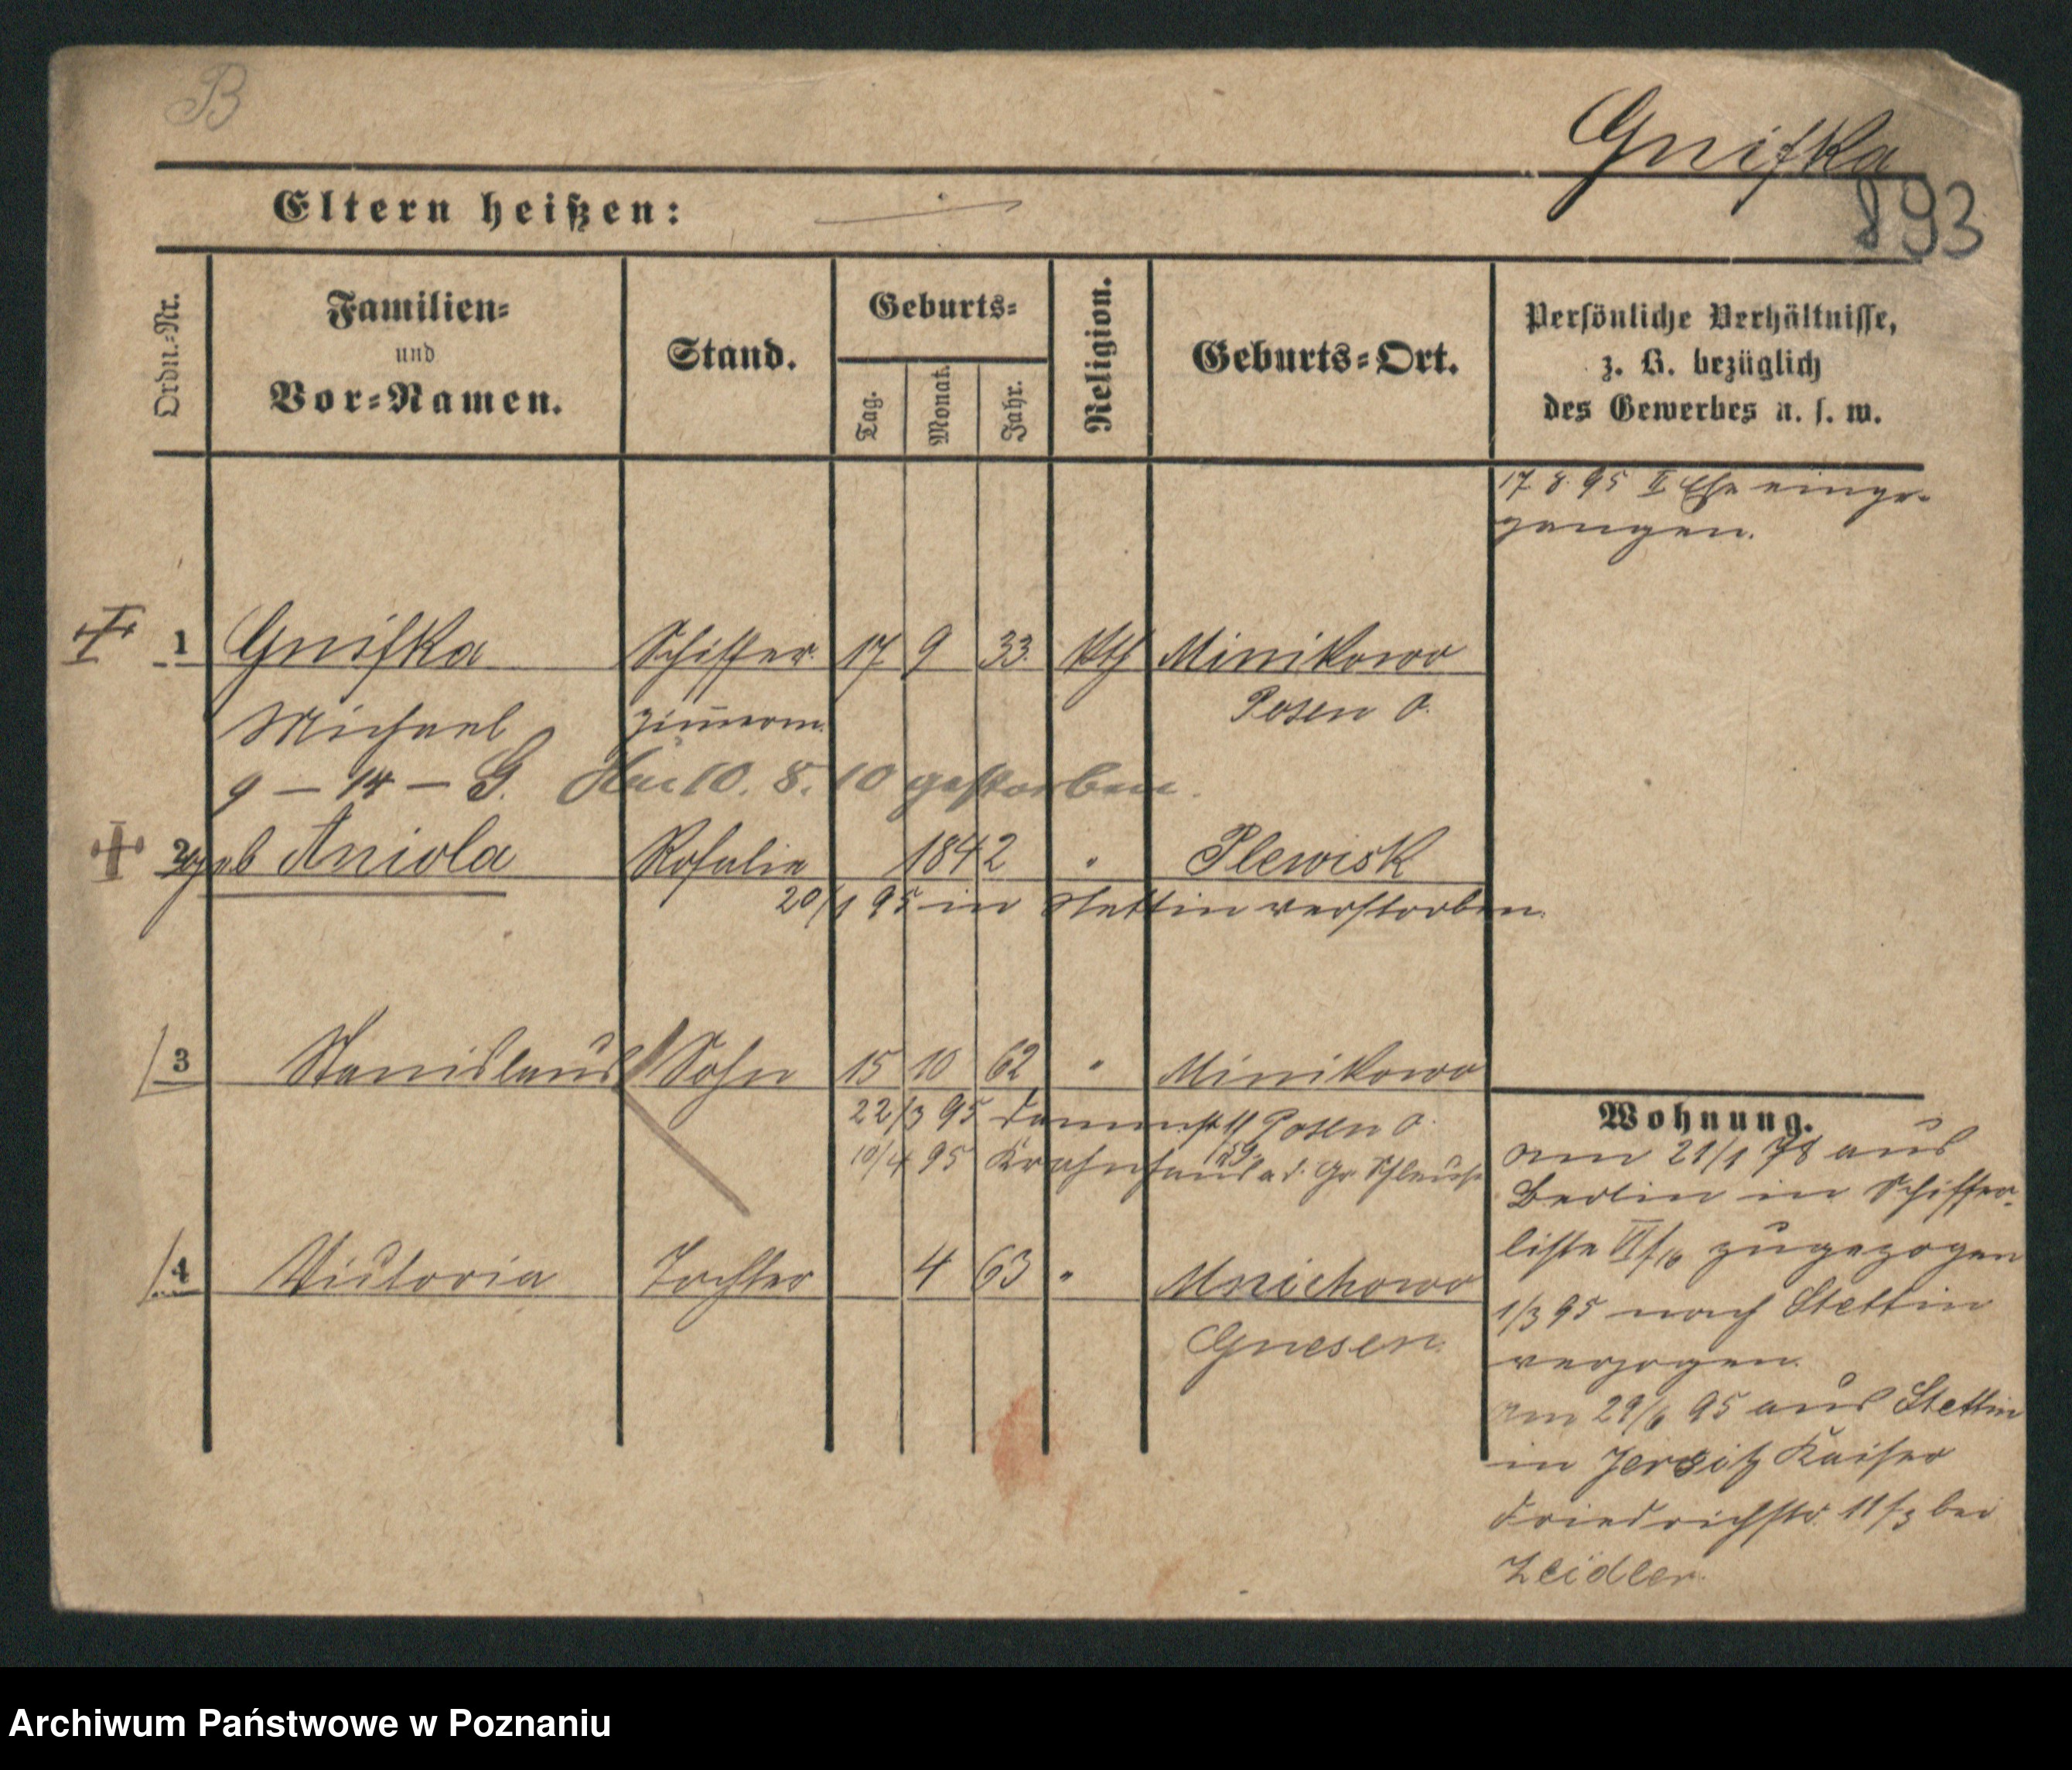 B
Gnifka
893
Eltern heißen: —
Ordn.-Nr.
Familien-
und
Vor-Namen.
Stand.
Geburts-
Tag.
Monat.
Jahr.
Religion.
Geburts-Ort.
Persönliche Verhältnisse,
z. B. bezüglich
des Gewerbes u. s. w.
17. 8. 95 II Ehe einge-
gangen.
1 Gnifka Schiffer. 17 9 33. kth Minikowo
Michael Zimmerm. Posen O.
9 – 14 – G. 10. 8. 10 gestorben.
2 geb Aniola Rosalie 1842 " Plewisk
20/1 95 in Stettin verstorben.
3 Stanislaus Sohn 15 10 62 " Minikowo
22/3 95 Dammstr 11 Posen O.
10/4 95 a. d. Gr. Schleuse
4 Victoria Tochter 4 63 " Mnichowo
Gnesen.
Wohnung.
am 21/1 78 aus
Berlin in Schiffer-
liste zugezogen
1/3 95 nach Stettin
verzogen.
am 29/6 95 aus Stettin
in Jersitz Kaiser
Friedrichstr. 11/3 bei
Zeidler.
Archiwum Państwowe w Poznaniu